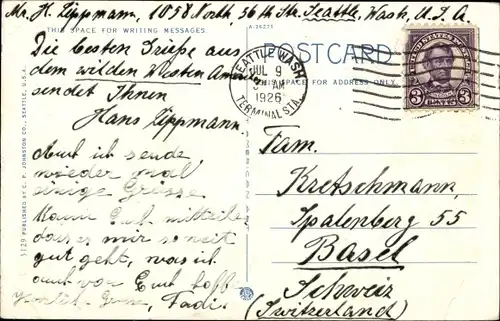 Mr. H. Zippmann, 1058 North, 56th Str. Seattle, Wash., U.S.A.
THIS SPACE FOR WRITING MESSAGES.
A-26271
POST CARD
THIS SPACE FOR ADDRESS ONLY.
SEATTLE WASH.
JUL 9
AM
1926
TERMINAL STA.
UNITED STATES POSTAGE
LINCOLN
3 CENTS 3
Die besten Grüße aus
dem wilden Westen
sendet Ihnen
Hans Zippmann
Auch ich sende
wieder mal
einige Grüsse
Kann Euch mitteilen
dass es mir so weit
gut geht, was ich
auch von Euch hoff-
Grüsse, Fadi.
Fam.
Kretschmann,
Spalenberg 55
Basel
Schweiz
(Switzerland)
5129 PUBLISHED BY C. P. JOHNSTON CO., SEATTLE, U.S.A.